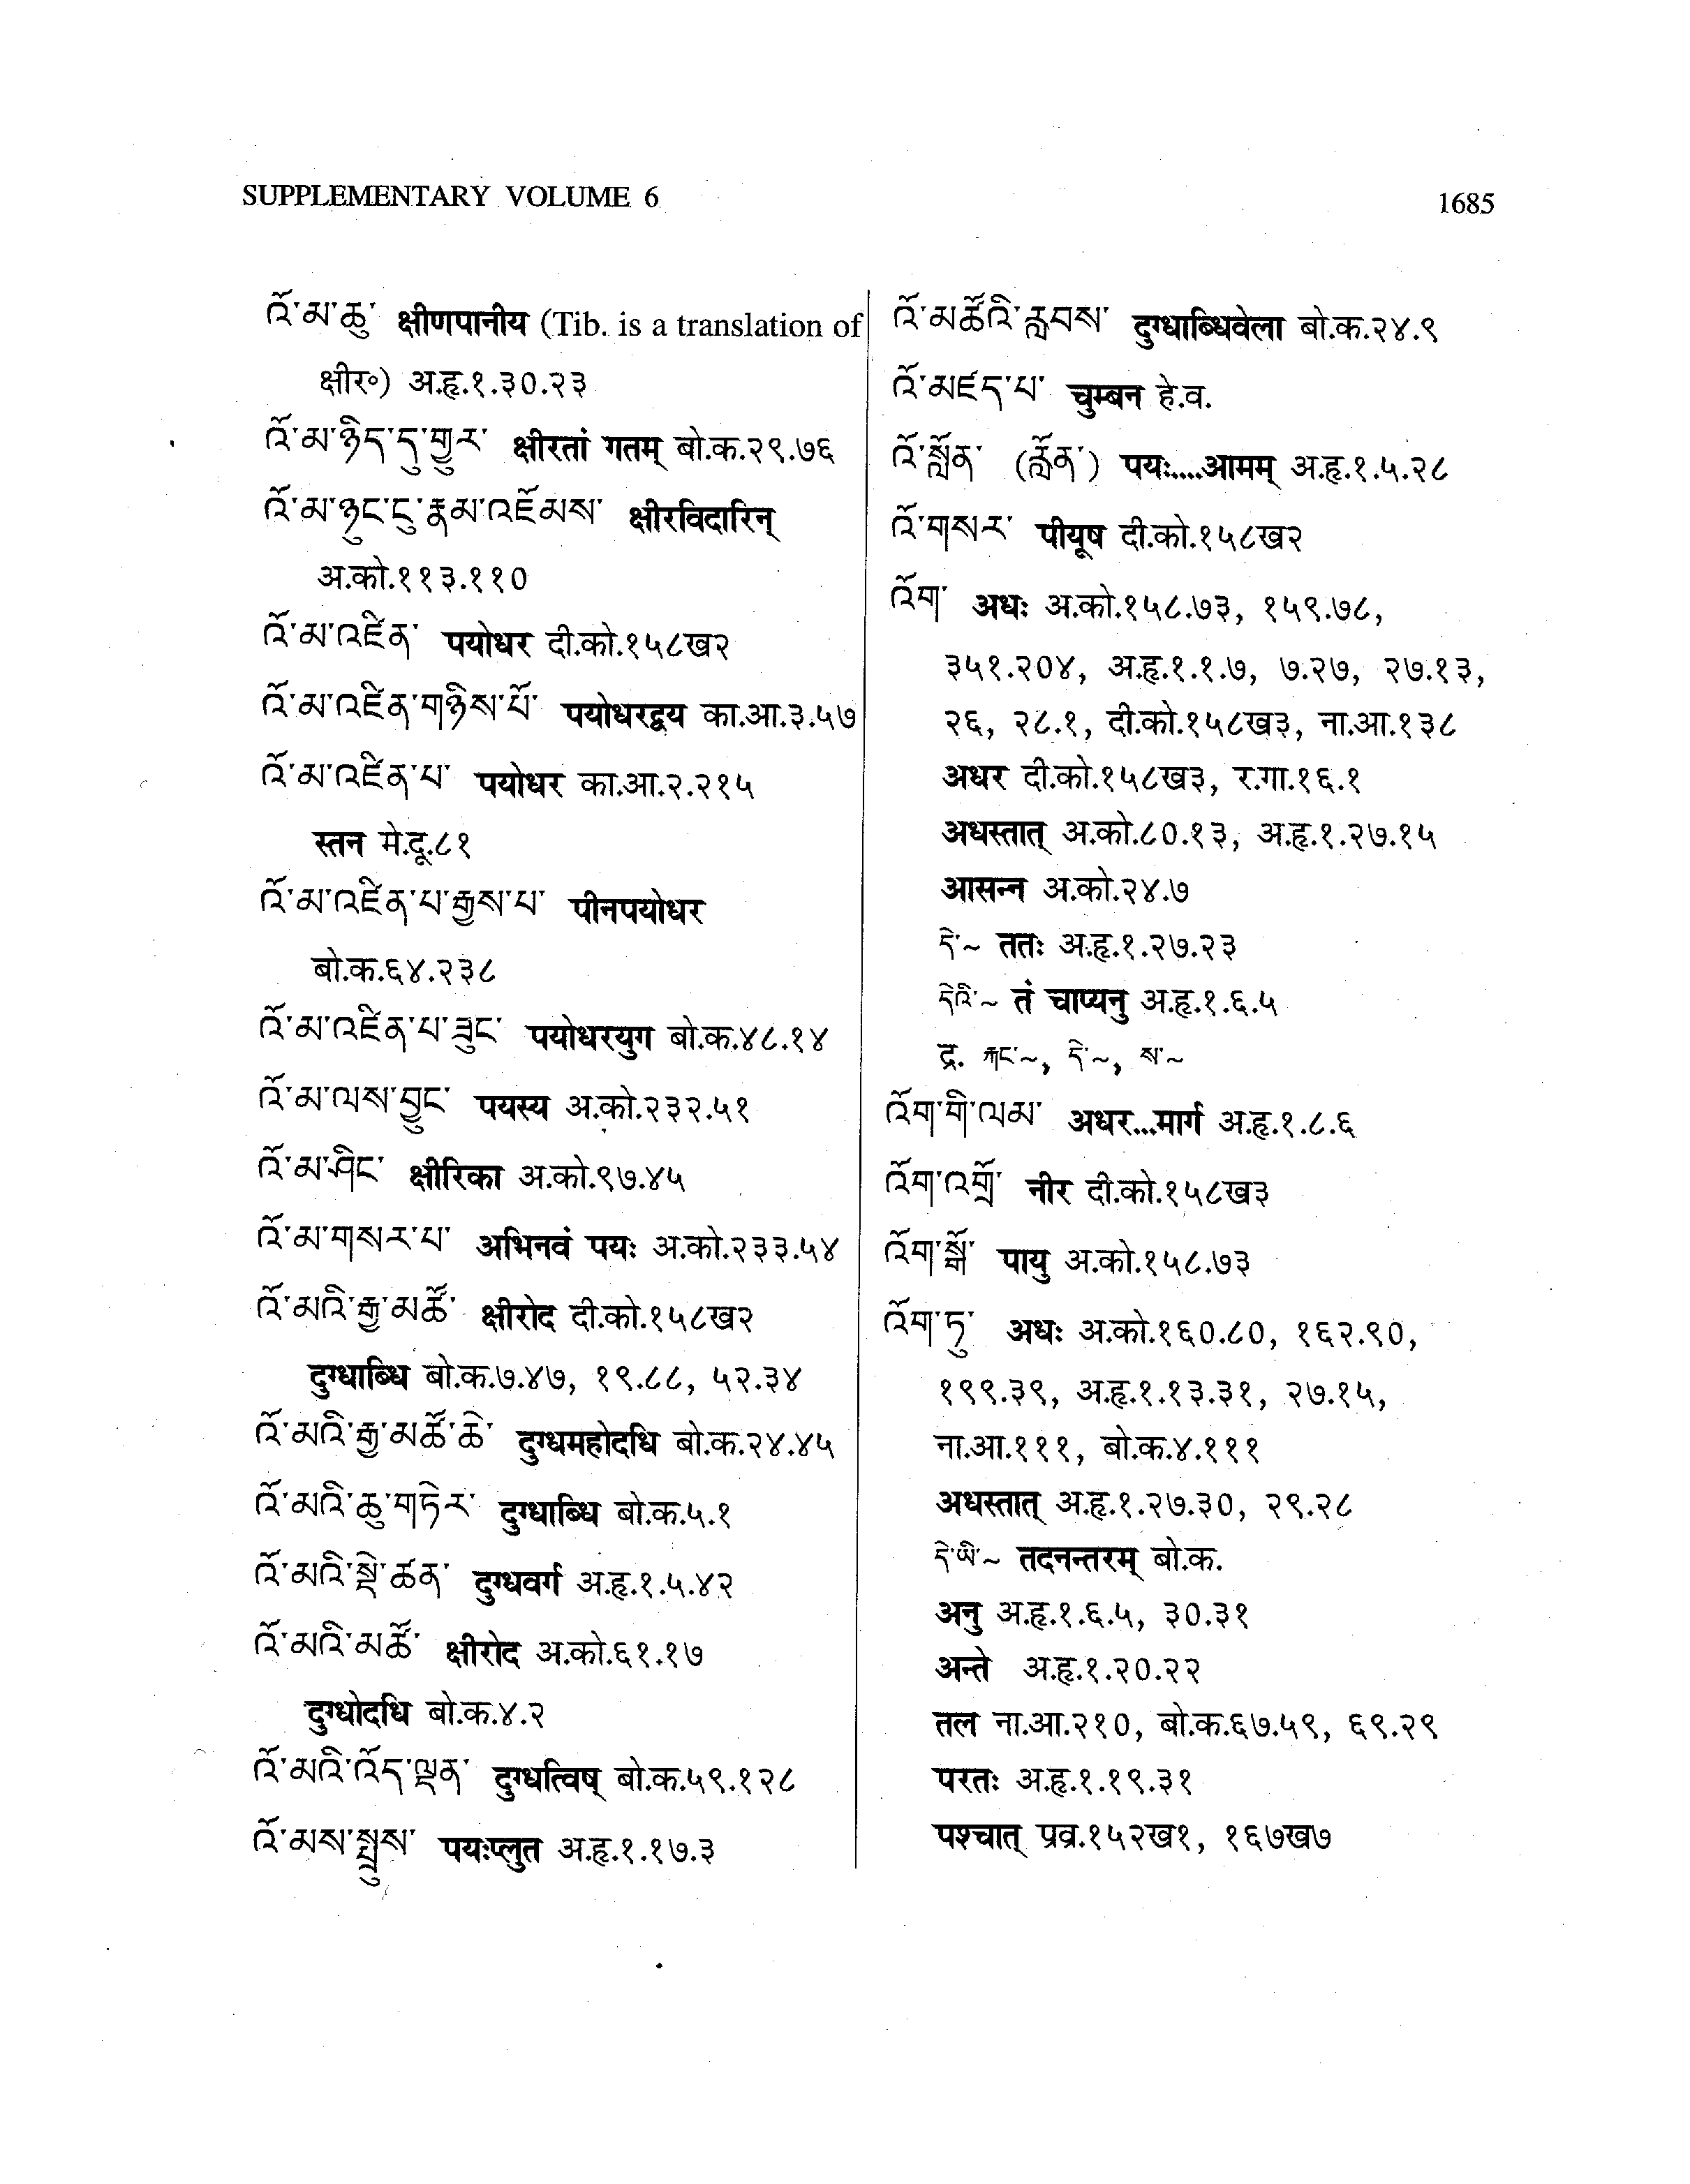 SUPPLEMENTARY VOLUME 6
1685
འོ་མ་ཆུ་ क्षीणपानीय (Tib. is a translation of
क्षीर॰) अ.हृ.१.३०.२३
འོ་མ་ཉིད་དུ་གྱུར་ क्षीरतां गतम् बो.क.२९.७६
འོ་མ་ཉུང་ངུ་རྣམ་འཇོམས་ क्षीरविदारिन्
अ.को.११३.११०
འོ་མ་འཛིན་ पयोधर दी.को.१५८ख२
འོ་མ་འཛིན་གཉིས་པོ་ पयोधरद्वय का.आ.३.५७
འོ་མ་འཛིན་པ་ पयोधर का.आ.२.२१५
स्तन मे.दू.८१
འོ་མ་འཛིན་པ་རྒྱས་པ་ पीनपयोधर
बो.क.६४.२३८
འོ་མ་འཛིན་པ་ཟུང་ पयोधरयुग बो.क.४८.१४
འོ་མ་ལས་བྱུང་ पयस्य अ.को.२३२.५१
འོ་མ་ཤིང་ क्षीरिका अ.को.९७.४५
འོ་མ་གསར་པ་ अभिनवं पयः अ.को.२३३.५४
འོ་མའི་རྒྱ་མཚོ་ क्षीरोद दी.को.१५८ख२
दुग्धाब्धि बो.क.७.४७, १९.८८, ५२.३४
འོ་མའི་རྒྱ་མཚོ་ཆེ་ दुग्धमहोदधि बो.क.२४.४५
འོ་མའི་ཆུ་གཏེར་ दुग्धाब्धि बो.क.५.१
འོ་མའི་སྡེ་ཚན་ दुग्धवर्ग अ.हृ.१.५.४२
འོ་མའི་མཚོ་ क्षीरोद अ.को.६१.१७
दुग्धोदधि बो.क.४.२
འོ་མའི་འོད་ལྡན་ दुग्धत्विष् बो.क.५९.१२८
འོ་མས་སྦྲུས་ पयःप्लुत अ.हृ.१.१७.३
འོ་མཚོའི་རླབས་ दुग्धाब्धिवेला बो.क.२४.९
འོ་མཛད་པ་ चुम्बन हे.व.
འོ་སློན་ (རློན་) पयः....आमम् अ.हृ.१.५.२८
འོ་གསར་ पीयूष दी.को.१५८ख२
འོག་ अधः अ.को.१५८.७३, १५९.७८,
३५१.२०४, अ.हृ.१.१.७, ७.२७, २७.१३,
२६, २८.१, दी.को.१५८ख३, ना.आ.१३८
अधर दी.को.१५८ख३, र.गा.१६.१
अधस्तात् अ.को.८०.१३, अ.हृ.१.२७.१५
आसन्न अ.को.२४.७
དེ་~ ततः अ.हृ.१.२७.२३
དེའི་~ तं चाप्यनु अ.हृ.१.६.५
द्र. རྐང་~, དེ་~, ས་~
འོག་གི་ལམ་ अधर...मार्ग अ.हृ.१.८.६
འོག་འགྲོ་ नीर दी.को.१५८ख३
འོག་སྒོ་ पायु अ.को.१५८.७३
འོག་ཏུ་ अधः अ.को.१६०.८०, १६२.९०,
१९९.३९, अ.हृ.१.१३.३१, २७.१५,
ना.आ.१११, बो.क.४.१११
अधस्तात् अ.हृ.१.२७.३०, २९.२८
དེ་ཡི་~ तदनन्तरम् बो.क.
अनु अ.हृ.१.६.५, ३०.३१
अन्ते अ.हृ.१.२०.२२
तल ना.आ.२१०, बो.क.६७.५९, ६९.२९
परतः अ.हृ.१.१९.३१
पश्चात् प्रव्र.१५२ख१, १६७ख७